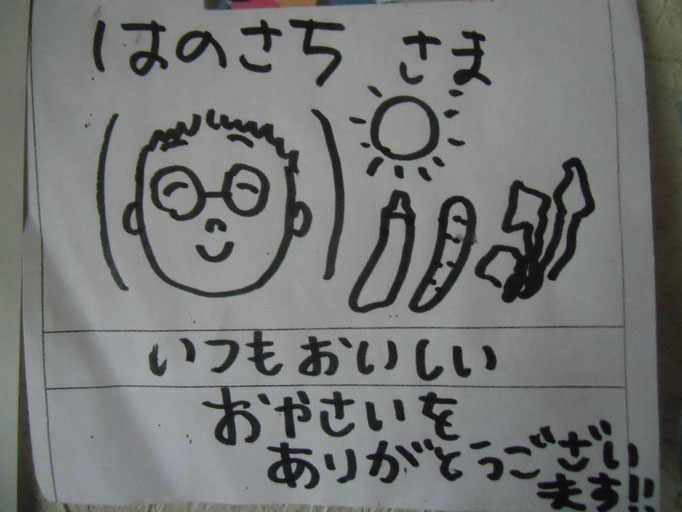 はのさち さま
いつもおいしい
おやさいを
ありがとうござい
ます!!